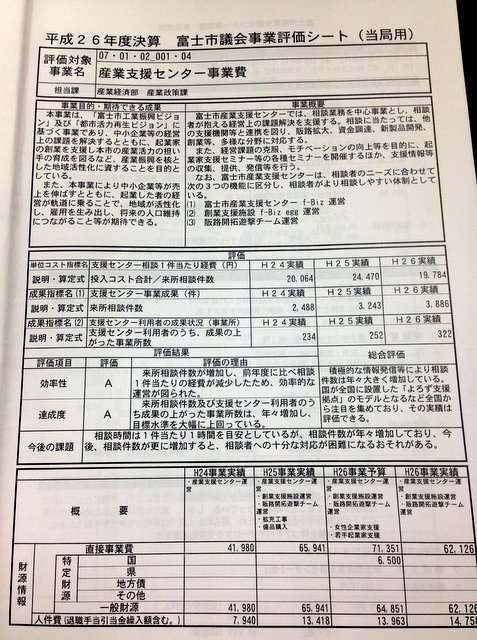 平成２６年度決算　富士市議会事業評価シート（当局用）
評価対象事業名
07・01・02_001・04
産業支援センター事業費
担当課　産業経済部　産業政策課
事業目的・期待できる成果
本事業は、「富士市工業振興ビジョン」及び「都市活力再生ビジョン」に基づく事業であり、中小企業等の経営上の課題を解決するとともに、起業家の創業を支援し本市の産業活力の担い手の育成を図るなど、産業振興を核とした地域活性化に資することを目的としている。
また、本事業により中小企業等が売上を伸ばすとともに、起業した者の経営が軌道に乗ることで、地域が活性化し、雇用を生み出し、将来の人口維持につながること等が期待できる。
事業概要
富士市産業支援センターでは、相談業務を中心事業とし、相談者が抱える経営上の課題解決を支援する。相談に当たっては、他の支援機関等と連携を図り、販路拡大、資金調達、新製品開発、創業等、多様な分野に対応する。
また、経営課題の克服、モチベーションの向上等を目的に、起業家支援セミナー等の各種セミナーを開催するほか、支援情報等の収集、提供、発信等を行う。
なお、富士市産業支援センターは、相談者のニーズに合わせて次の３つの機能に区分し、相談者がより相談しやすい体制としている。
(1)　富士市産業支援センター f-Biz 運営
(2)　創業支援施設 f-Biz egg 運営
(3)　販路開拓遊撃チーム運営
評価
単位コスト指標名 支援センター相談１件当たり経費（円） Ｈ２４実績 Ｈ２５実績 Ｈ２６実績
説明・算定式 投入コスト合計／来所相談件数 20,064 24,470 19,784
成果指標名(1) 支援センター事業成果（件） Ｈ２４実績 Ｈ２５実績 Ｈ２６実績
説明・算定式 来所相談件数 2,488 3,243 3,886
成果指標名(2) 支援センター利用者の成果状況（事業所） Ｈ２４実績 Ｈ２５実績 Ｈ２６実績
説明・算定式 支援センター利用者のうち、成果の上がった事業所数 234 252 322
評価結果
評価項目 評価 評価の理由 総合評価
効率性 Ａ 来所相談件数が増加し、前年度に比べ相談１件当たりの経費が減少したため、効率的な運営が図られた。
達成度 Ａ 来所相談件数及び支援センター利用者のうち成果の上がった事業所数は、年々増加し、目標水準を大幅に上回っている。
積極的な情報発信等により相談件数は年々大きく増加している。国が全国に設置した「よろず支援拠点」のモデルとなるなど全国から注目を集めており、その実績は評価できる。
今後の課題 相談時間は１件当たり１時間を目安としているが、相談件数が年々増加しており、今後、相談件数が更に増加すると、相談者への十分な対応が困難になるおそれがある。
H24事業実績 H25事業実績 H26事業予算 H26事業実績
概　要
・産業支援センター運営
・産業支援センター運営
・創業支援施設運営
・販路開拓遊撃チーム運営
・拡充工事
・備品購入
・産業支援センター運営
・創業支援施設運営
・販路開拓遊撃チーム運営
・女性企業家支援
・若手起業家支援
・産業支援センター運営
・創業支援施設運営
・販路開拓遊撃チーム運営
財源情報
直接事業費 41,980 65,941 71,351 62,126
特定財源
国 6,500
県
地方債
その他
一般財源 41,980 65,941 64,851 62,126
人件費(退職手当引当金繰入額含む。) 7,940 13,418 13,963 14,75